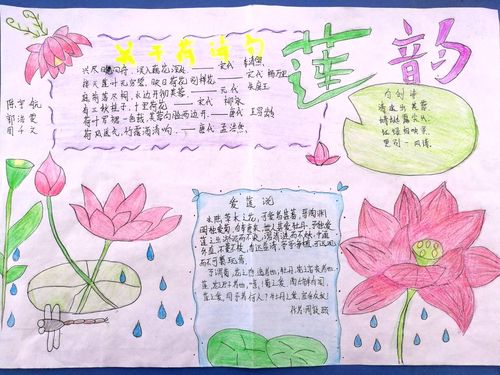 关于荷诗句
莲韵
兴尽晚回舟，误入藕花深处。——宋代 李清照
接天莲叶无穷碧，映日荷花别样红。——宋代 杨万里
水边开彻芙蓉。——元代
有三秋桂子，十里荷花。——宋代 柳永
荷叶罗裙一色裁，芙蓉向脸两边开。——唐代 王昌龄
荷风送香气，竹露滴清响。——唐代 孟浩然
清波出芙蓉
蜻蜓露尖尖
红绿相映
一风情
爱莲说
水陆草木之花，可爱者甚蕃。晋陶渊
明独爱菊。自李唐来，世人甚爱牡丹。予独爱
莲之出淤泥而不染，濯清涟而不妖，中通
外直，不蔓不枝，香远益清，亭亭净植，可远观
而不可亵玩焉。
予谓菊，花之隐逸者也；牡丹，花之富贵者也；
莲，花之君子者也。噫！菊之爱，陶后鲜有闻。
莲之爱，同予者何人？牡丹之爱，宜乎众矣！